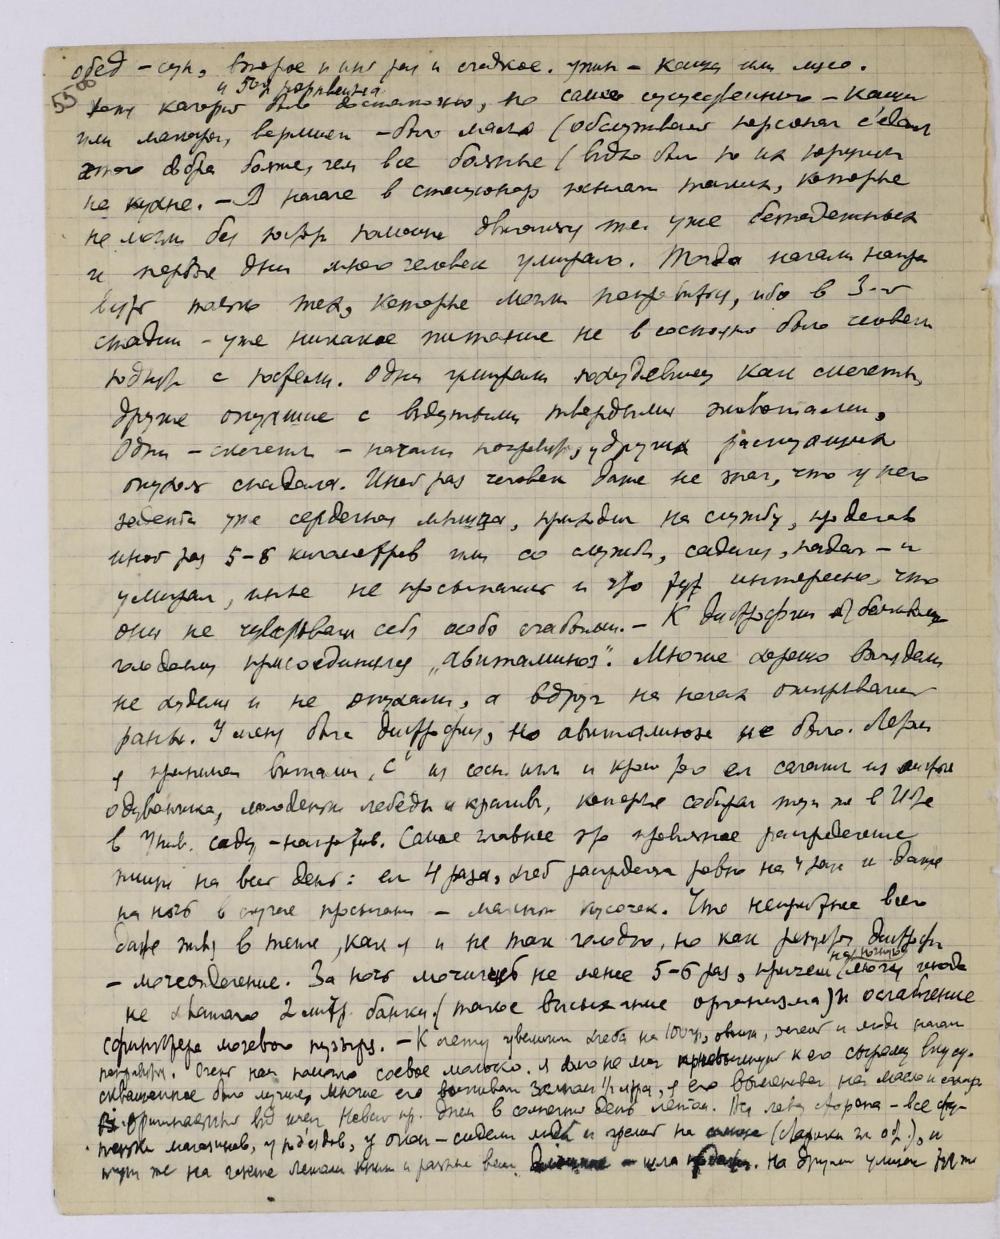 обед – суп, второе и иног раз и сладкое. ужин – каша или мясо.
и 50 гр
55
было достаточно, но самое существенное – каши
или макароны, вермишели – было масла (обслуживал персонал съедал
этого добра больше, чем все больные (видно было по их
на кухне. – В начале в стационар таких, которые
не могли без помощи уже безнадежных
и первые дни много человек умирало. Тогда начали
только тех, которые могли поправиться, ибо в 3-й
стадии – уже никакое питание не в состоянии было человека
поднять с постели. Одни умирали похудевшие как скелеты,
другие опухшие с вздутыми твердыми животами.
Одни – скелеты – начали поправ, у других распухших
опухоль спадала. Иног раз человек даже не знал, что у него
задета уже сердечная мышца, приходил на службу, проделав
иног раз 5-8 километров или со службы, садился, падал – и
умирал, иные не просыпались и это тут интересно, что
они не чувствовали себя особо слабыми. – К дистрофии от
голодания присоединился „авитаминоз". Многие хорошо выглядели
не худели и не опухали, а вдруг на ногах открывались
раны. У меня была дистрофия, но авитаминоза не было. Летом
я принимал витамин „С" из сосн. игл и кроме того ел салаты из листьев
одуванчика, молодой лебеды и крапивы, которые собирал тут же в
в саду – напротив. Самое главное это правильное распределение
пищи на весь день: ел 4 раза, хлеб распределял ровно на 4 раза и даже
на ночь в случае просыпания – маленький кусочек. Что неприятнее всего
даже живя в тепле, как я и не так голодно, но как результат дистрофии
– мочеотделение. За ночь мочишься не менее 5-6 раз, причем на ночную иногда
не хватало 2 литр. банки (такое высыхание организма) и ослабление
сфинктера мочевого пузыря. – К лету увеличили хлеба на 100 гр, овощи, зелень и люди начали
поправл. Очень нам помогло соевое молоко. Я долго не мог к его сырому вкусу.
сквашенное было лучше, многие его выпивали залпом 1/2 литра, я его выменивал на масло и сахар
вид имел Невский пр. днем в солнечный день летом. Вся левая сторона – все
магазинов, у подъездов, у окон – сидели люди и грелись на солнце , и
тут же на газете лежали книги и разные вещи – шла продажа. на других улицах тоже